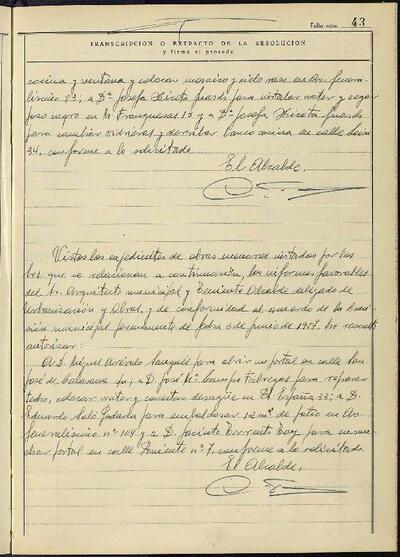 Folio núm. 43
TRANSCRIPCIÓN O EXTRACTO DE LA RESOLUCIÓN
y firma si procede
cocina y ventana y colocar mosaico y cielo raso en Av. Genera-
lísimo 82; a Dª Josefa Xicota para instalar water y cegar
pozo negro en M. Franquesas 13 y a Dª Josefa Xicota
para cambiar vidrieras y derribar banco cocina en calle
34, conforme a lo solicitado.
El Alcalde.
Vistos los expedientes de obras menores instados por los
Srs. que se relacionan a continuación, los informes favorables
del Sr. Arquitecto municipal y Teniente Alcalde delegado de
Urbanización y Obras, y de conformidad al acuerdo de la Comi-
sión municipal permanente de fecha 5 de junio de 1957. He resuelto
autorizar:
A D. Miguel Arévalo para abrir un portal en calle San
José de Calasanz s/n; a D. José Mª Camps Fabregas para reparar
tedro, colocar water y construir desagüe en Pl. España 33; a D.
Eduardo Saló para embaldosar 12 m² de patio en Av.
Generalísimo nº 104 y a D. Jacinto Torrents para ensan-
char portal en calle Poniente nº 7, conforme a lo solicitado.
El Alcalde,